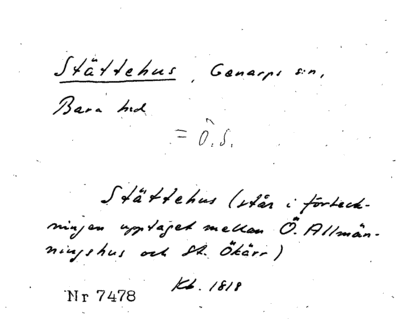 Stättehus, Genarps sn,
Bara hd
= Ö. S.
Stättehus (står i förteck-
ningen upptaget mellan Ö. Allmän-
ningshus och St. Ökärr)
Kb. 1818
Nr 7478